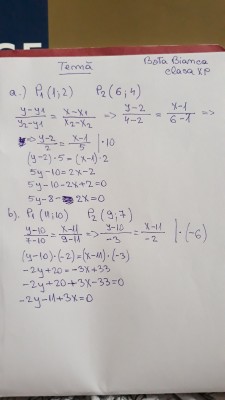 Temă
Bota Bianca
clasa XP
a.) P₁(1;2) P₂(6;4)
y-y₁/y₂-y₁ = x-x₁/x₂-x₂ => y-2/4-2 = x-1/6-1 =>
=> y-2/2 = x-1/5 |·10
(y-2)·5 = (x-1)·2
5y-10=2x-2
5y-10-2x+2=0
5y-8-2x=0
b). P₁(11;10) P₂(9;7)
y-10/7-10 = x-11/9-11 => y-10/-3 = x-11/-2 |·(-6)
(y-10)·(-2)=(x-11)·(-3)
-2y+20=-3x+33
-2y+20+3x-33=0
-2y-11+3x=0